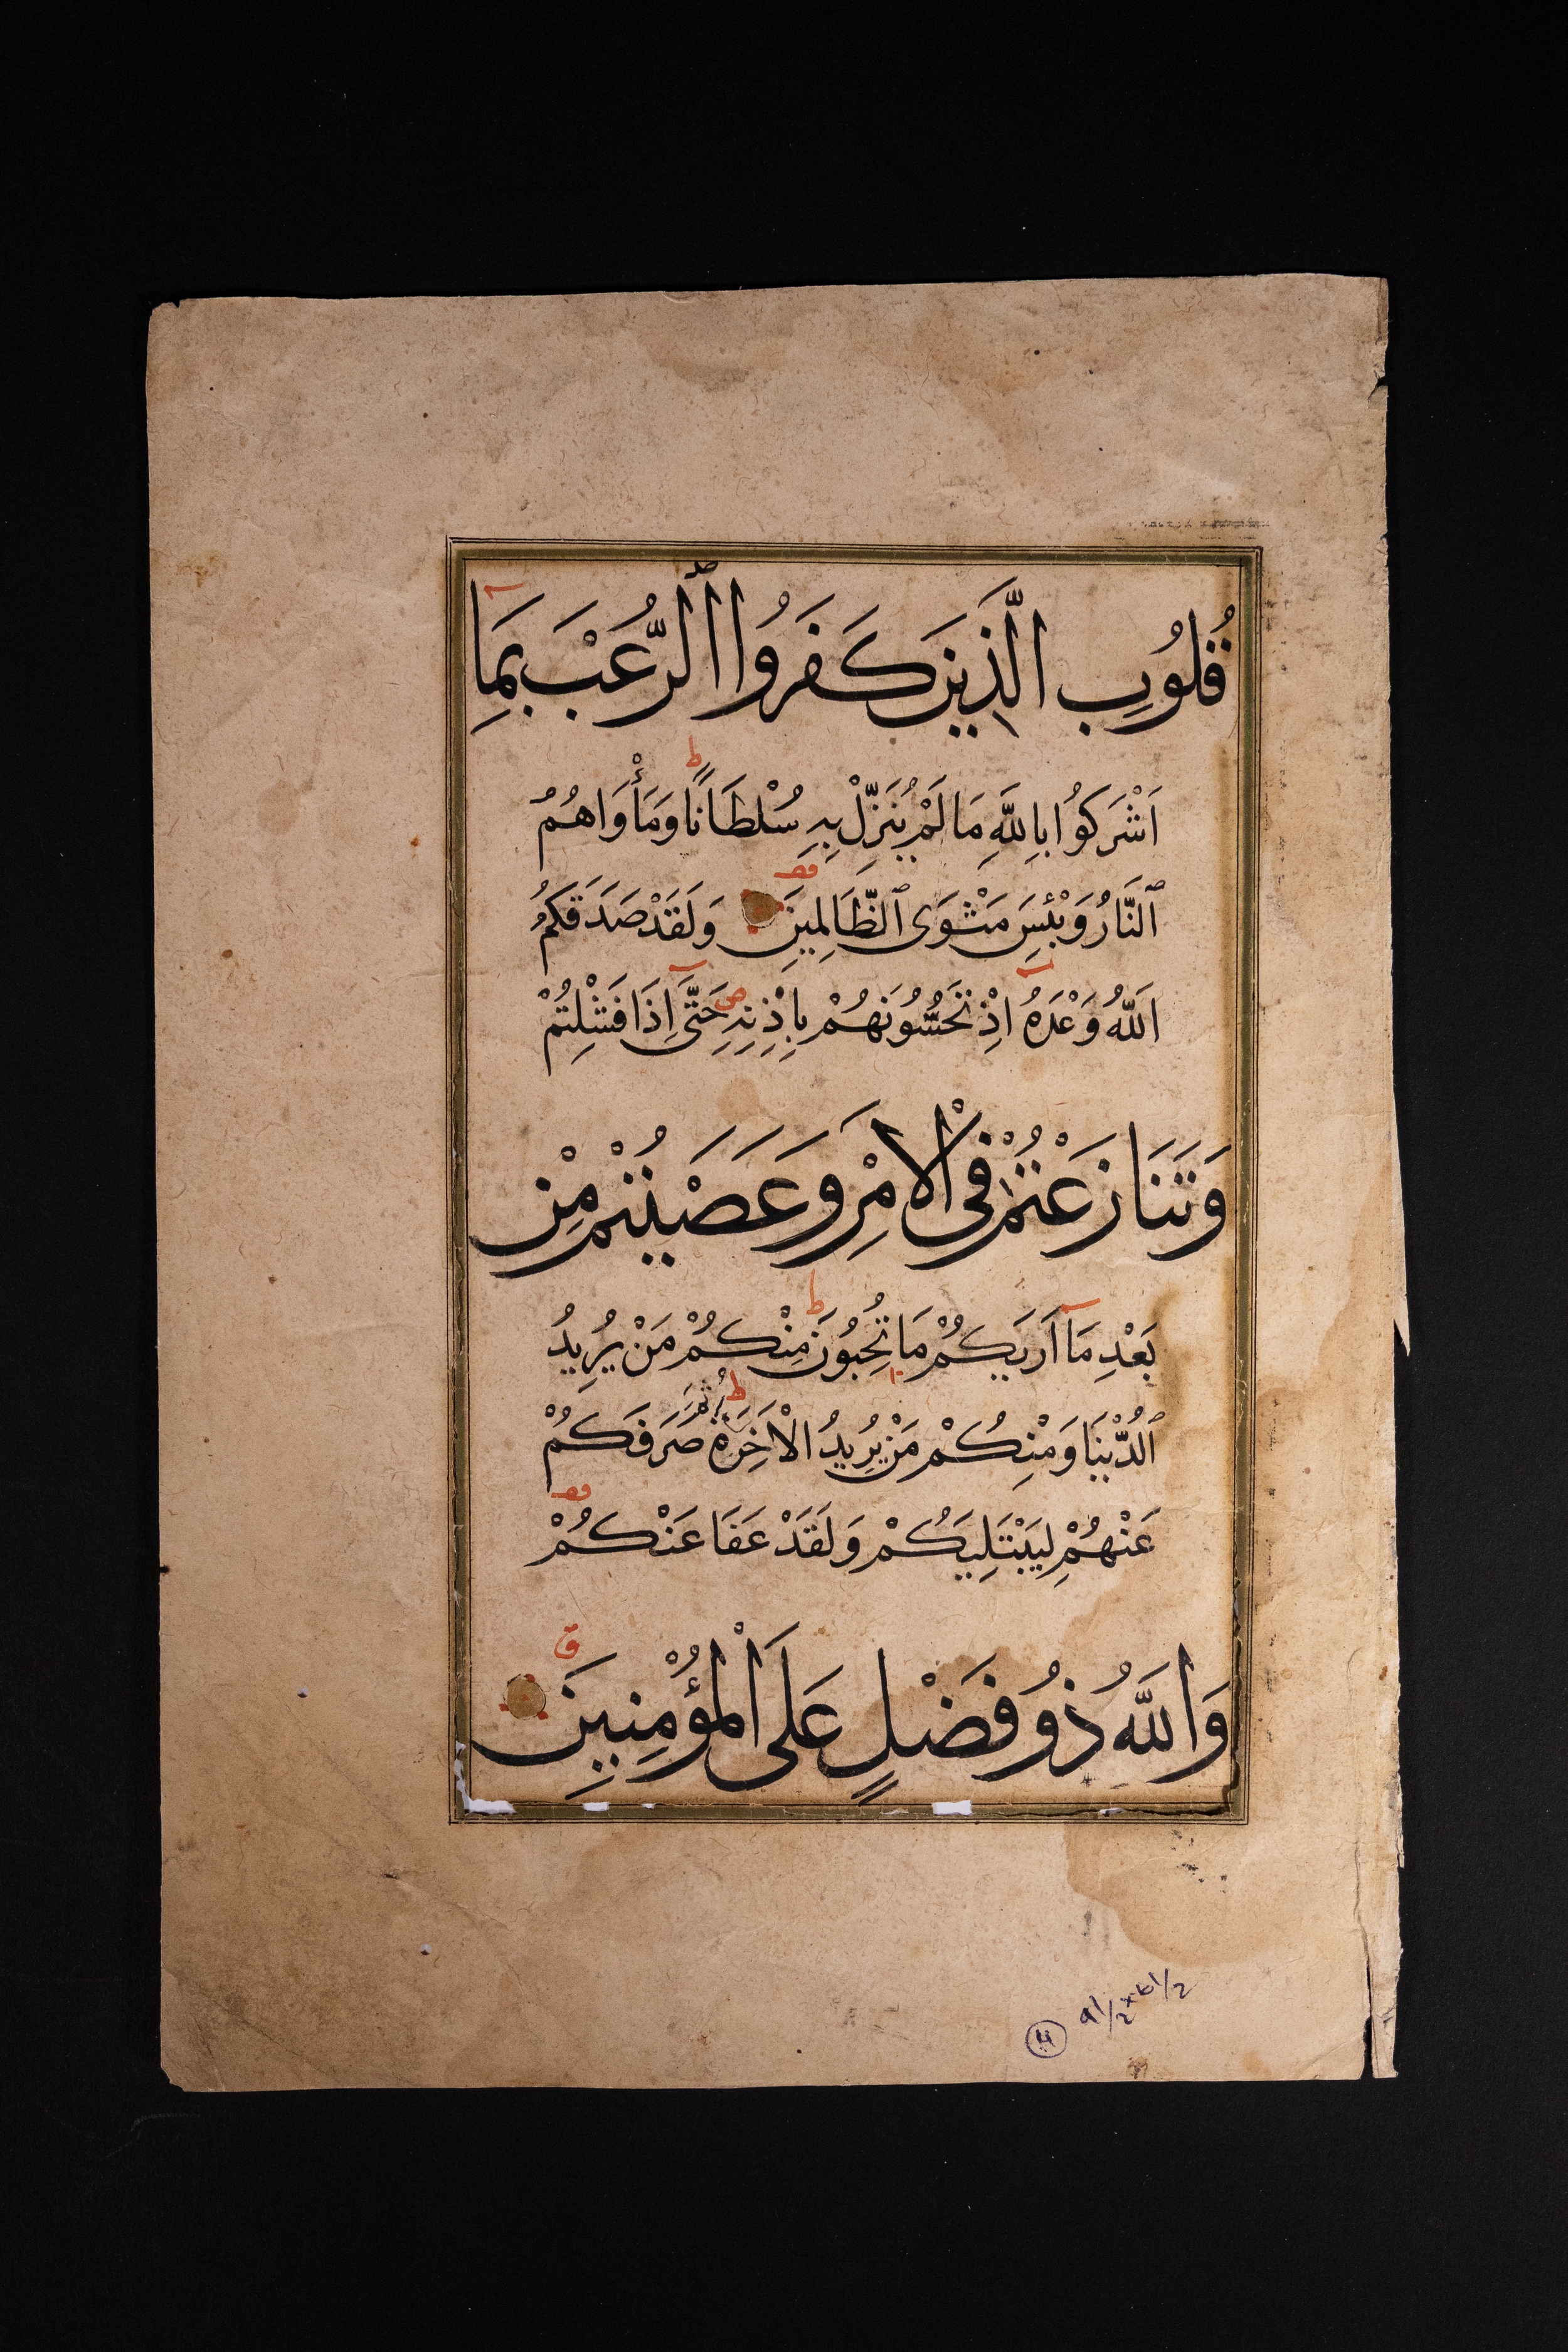 قُلُوبِ الَّذِينَ كَفَرُوا ٱلرُّعْبَ بِمَا
اَشْرَكُوا بِاللَّهِ مَا لَمْ يُنَزِّلْ بِهِ سُلْطَانًا وَمَأْوَاهُمُ
ٱلنَّارُ وَبِئْسَ مَثْوَى ٱلظَّالِمِينَ وَلَقَدْ صَدَقَكُمُ
اللَّهُ وَعْدَهُ اِذْ تَحُسُّونَهُمْ بِاِذْنِهِ حَتَّى اِذَا فَشِلْتُمْ
وَتَنَازَعْتُمْ فِى الْاَمْرِ وَعَصَيْتُمْ مِنْ
بَعْدِ مَا اَرَيكُمْ مَا تُحِبُّونَ مِنْكُمْ مَنْ يُرِيدُ
ٱلدُّنْيَا وَمِنْكُمْ مَنْ يُرِيدُ الْاَخِرَةَ ثُمَّ صَرَفَكُمْ
عَنْهُمْ لِيَبْتَلِيَكُمْ وَلَقَدْ عَفَا عَنْكُمْ
وَاللَّهُ ذُو فَضْلٍ عَلَى الْمُؤْمِنِينَ